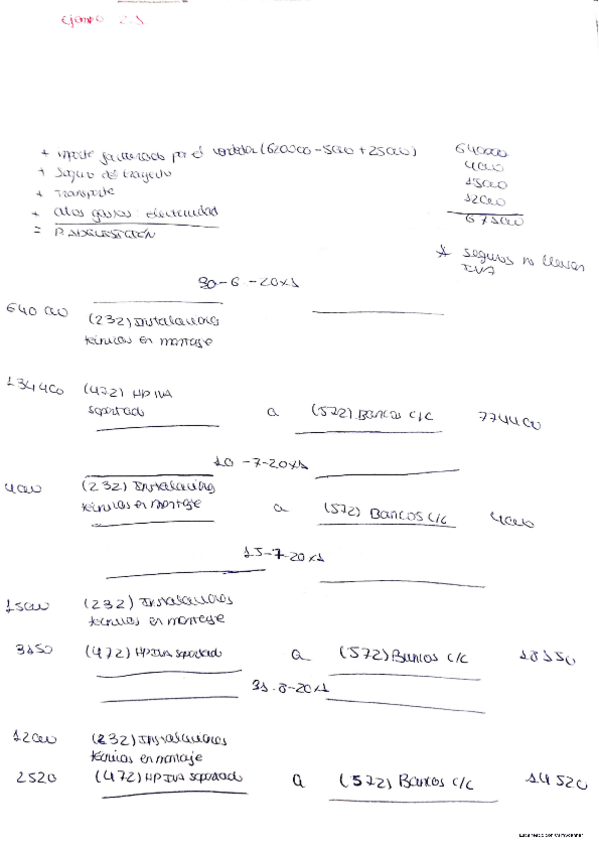 Ejemplo 2.1
+ importe facturado por el vendedor (620000 - 5000 + 25000) 640000
+ Seguro del trayecto 4000
+ Transporte 15000
+ otros gastos electricidad 12000
= P. ADQUISICIÓN 671000
* Seguros no llevan IVA
30-6-20x1
640 000 (232) Instalaciones
técnicas en montaje
134400 (472) HP IVA
soportado a (572) Bancos c/c 774400
10-7-20x1
4000 (232) Instalaciones
técnicas en montaje a (572) Bancos c/c 4000
15-7-20x1
15000 (232) Instalaciones
técnicas en montaje
3150 (472) HP IVA soportado a (572) Bancos c/c 18150
31-8-20x1
12000 (232) Instalaciones
técnicas en montaje
2520 (472) HP IVA soportado a (572) Bancos c/c 14520